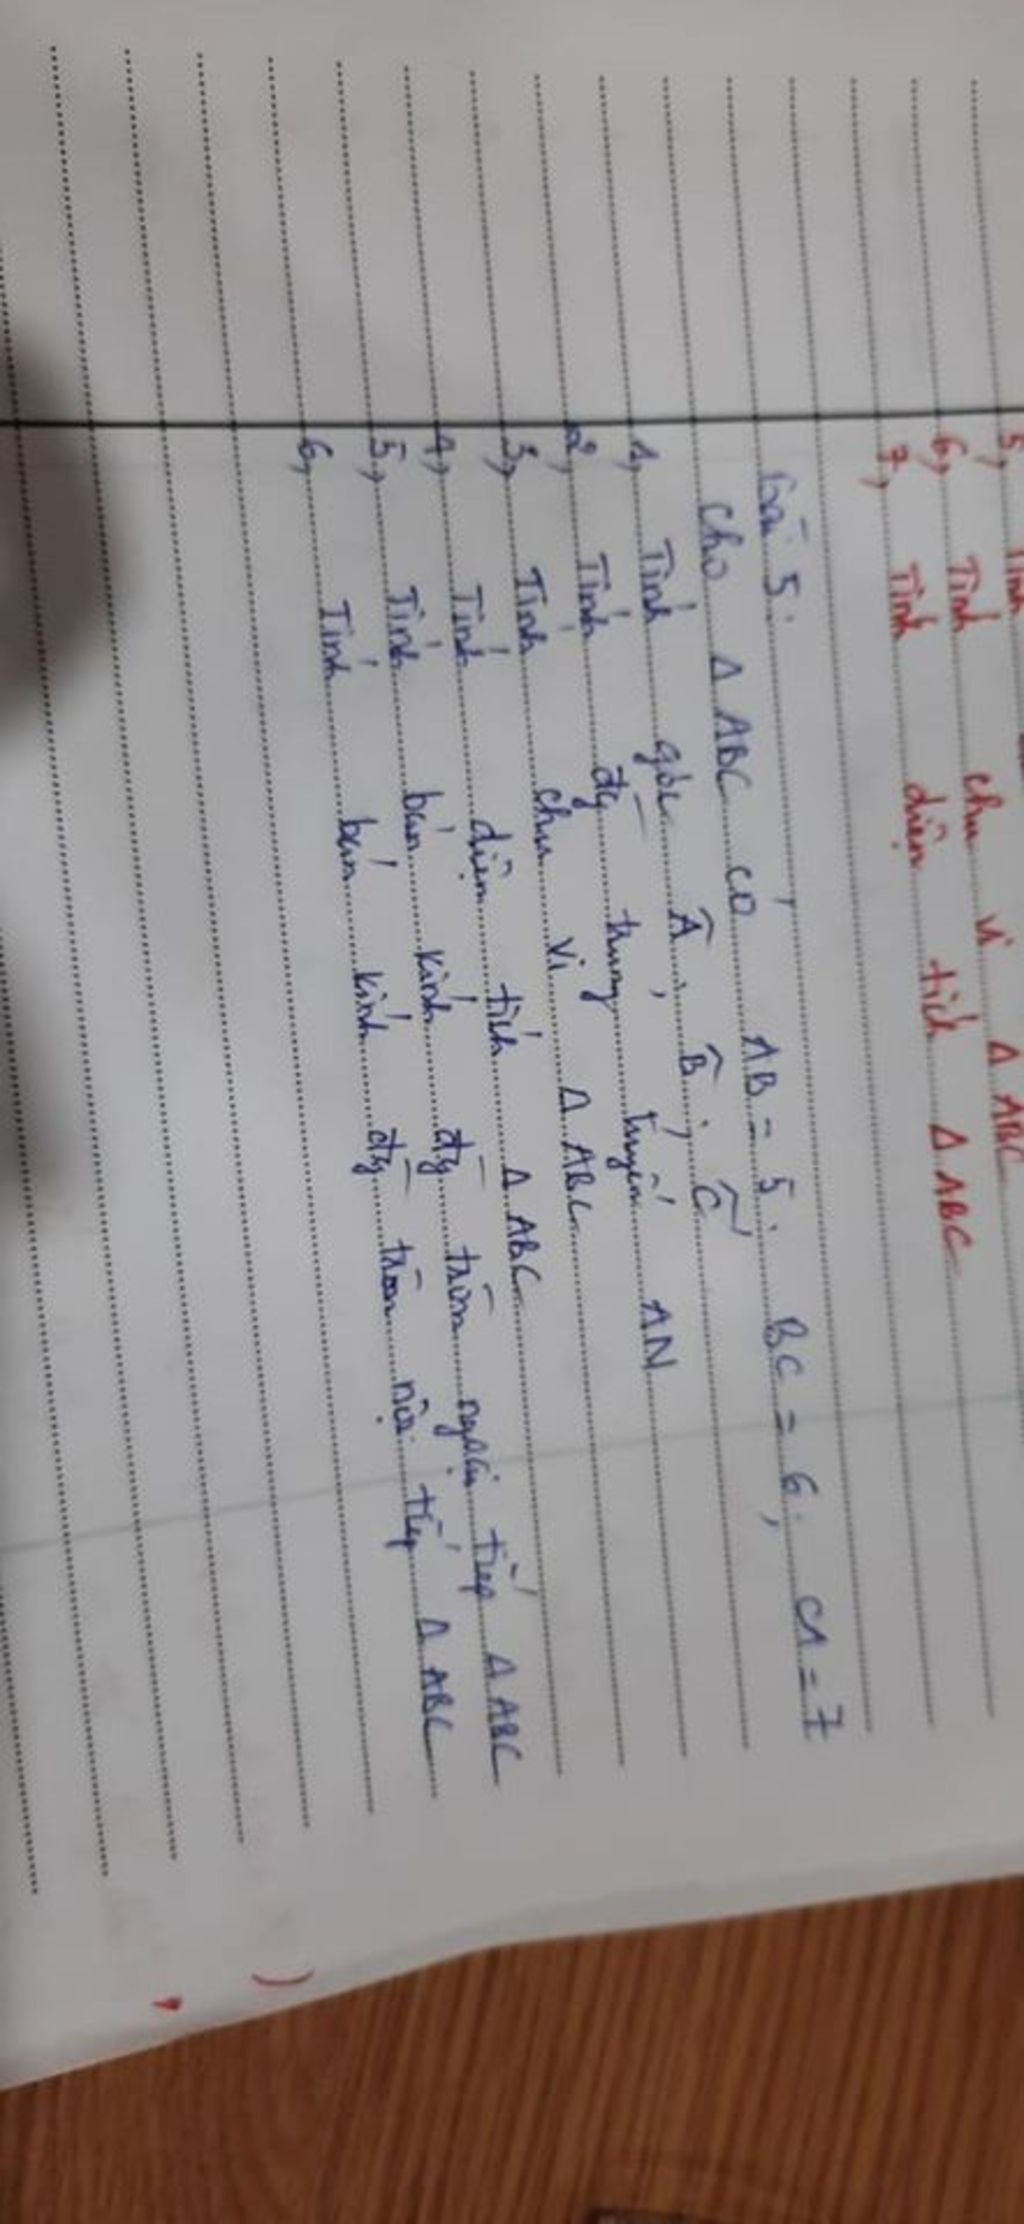 5, Tính
6, Tính chu vi Δ ABC
7, Tính diện tích Δ ABC
Bài 5.
Cho Δ ABC có AB = 5. BC = 6, CA = 7
1, Tính góc Â, B̂, Ĉ
2, Tính đg trung tuyến AN
3, Tính chu vi Δ ABC
4, Tính diện tích Δ ABC
5, Tính bán kính đg tròn ngoại tiếp Δ ABC
6, Tính bán kính đg tròn nội tiếp Δ ABC